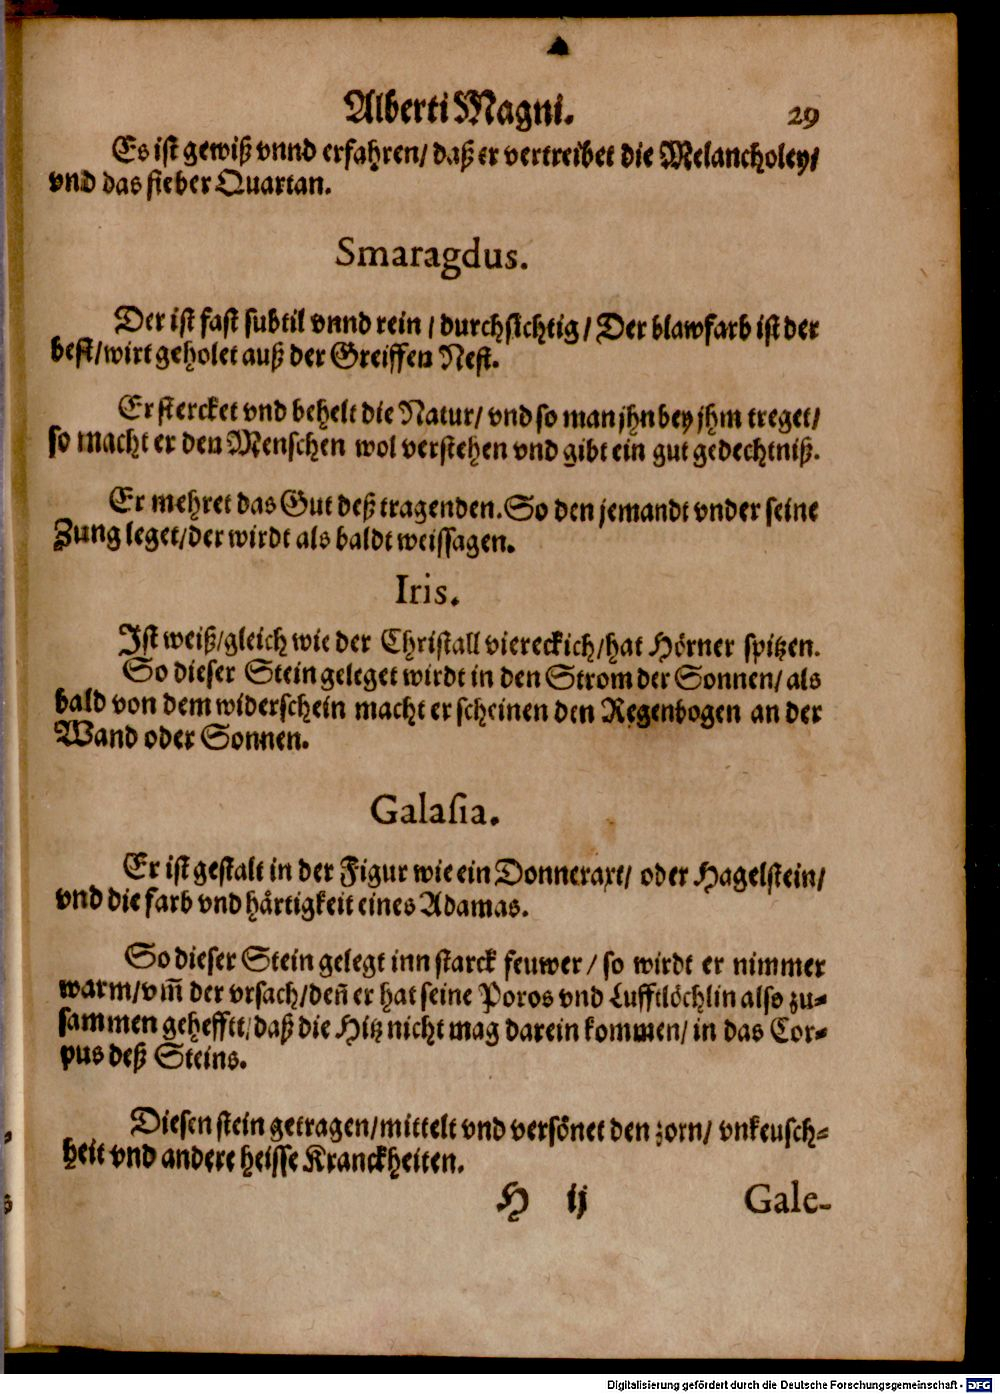 Alberti Magni. 29
Es ist gewiß vnnd erfahren/ daß er vertreibet die Melancholey/
vnd das fieber Quartan.
Smaragdus.
Der ist fast subtil vnnd rein / durchsichtig / Der blawfarb ist der
best/wirt geholet auß der Greiffen Nest.
Er stercket vnd behelt die Natur/ vnd so man jhn bey jhm treget/
so macht er den Menschen wol verstehen vnd gibt ein gut gedechtniß.
Er mehret das Gut deß tragenden. So den jemandt vnder seine
Zung leget/der wirdt als baldt weissagen.
Iris.
Ist weiß/gleich wie der Christall viereckich/hat Hörner spitzen.
So dieser Stein geleget wirdt in den Strom der Sonnen/ als
bald von dem widerschein macht er scheinen den Regenbogen an der
Wand oder Sonnen.
Galasia.
Er ist gestalt in der Figur wie ein Donneraxt/ oder Hagelstein/
vnd die farb vnd härtigkeit eines Adamas.
So dieser Stein gelegt inn starck feuwer / so wirdt er nimmer
warm/vm̄ der vrsach/den̄ er hat seine Poros vnd Lufftlöchlin also zu-
sammen gehefftt/daß die Hitz nicht mag darein kommen/ in das Cor-
pus deß Steins.
Diesen stein getragen/mittelt vnd versönet den zorn/ vnkeusch-
heit vnd andere heisse Kranckheiten.
H ij Gale-
Digitalisierung gefördert durch die Deutsche Forschungsgemeinschaft - DFG